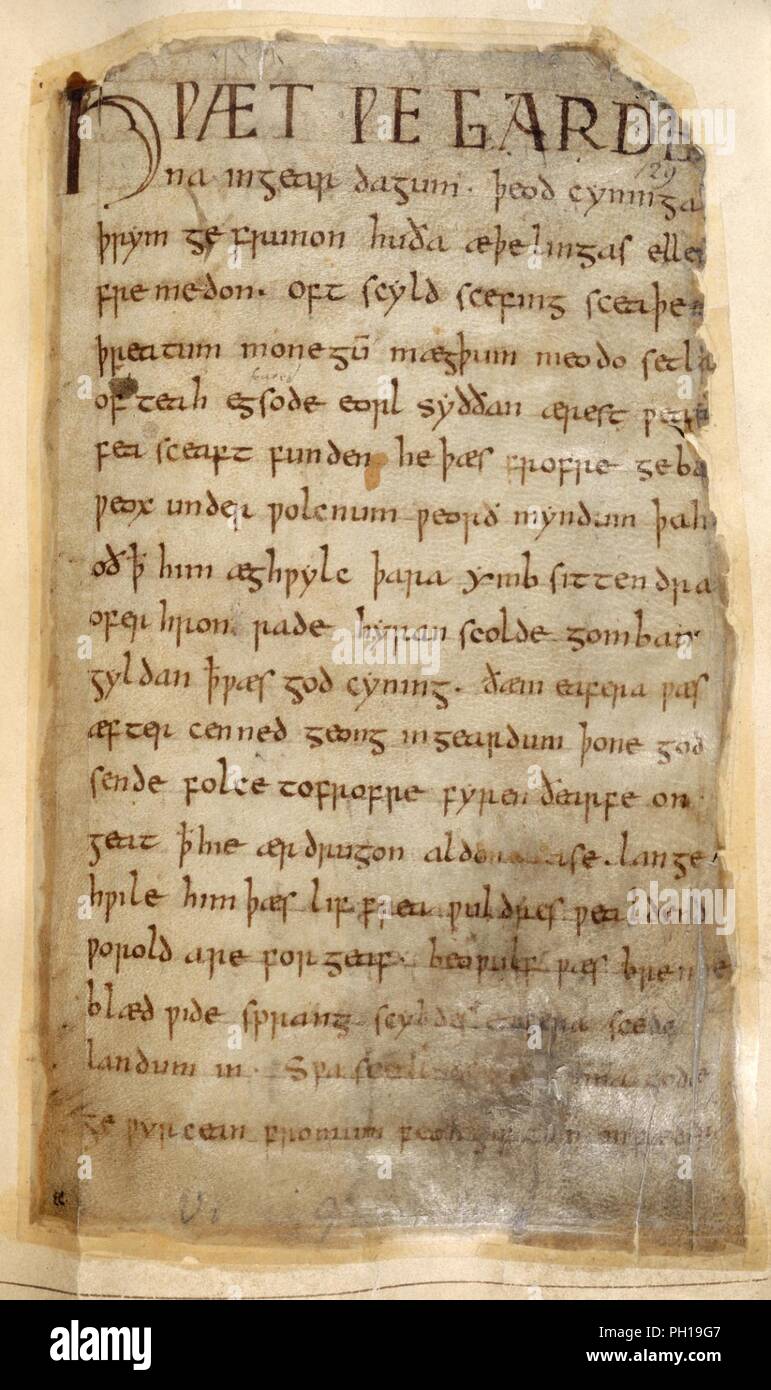 HǷÆT ǷE GARDE
129
na ingear dagum. þeod cyninga
þrym ge frunon huða æþelingas elle
fremedon. oft scyld scefing sceaþe
þreatum monegū mægþum meodo setla
of teah egsode eorl syððan ærest ƿear
fea sceaft funden he þæs frofre geba
ƿeox under ƿolcnum ƿeorð myndum þah
oð ꝥ him æghƿylc þara ymb sittendra
ofer hron rade hyran scolde gomban
gyldan ꝥ ƿæs god cyning. ðæm eafera ƿæs
æfter cenned geong ingeardum þone god
sende folce tofrofre fyren ðearfe on
geat ꝥ hie ær drugon aldor ase. lange
hƿile him þæs lif frea ƿuldres ƿealdend
ƿorold are for geaf. beoƿulf ƿæs breme
blæd ƿide sprang scyldes eafera scede
landum in. Sƿa guma gode
ge ƿyrcean fromum feoh giftum
alamy
alamy stock photo
alamy
Image ID: PH19G7
www.alamy.com